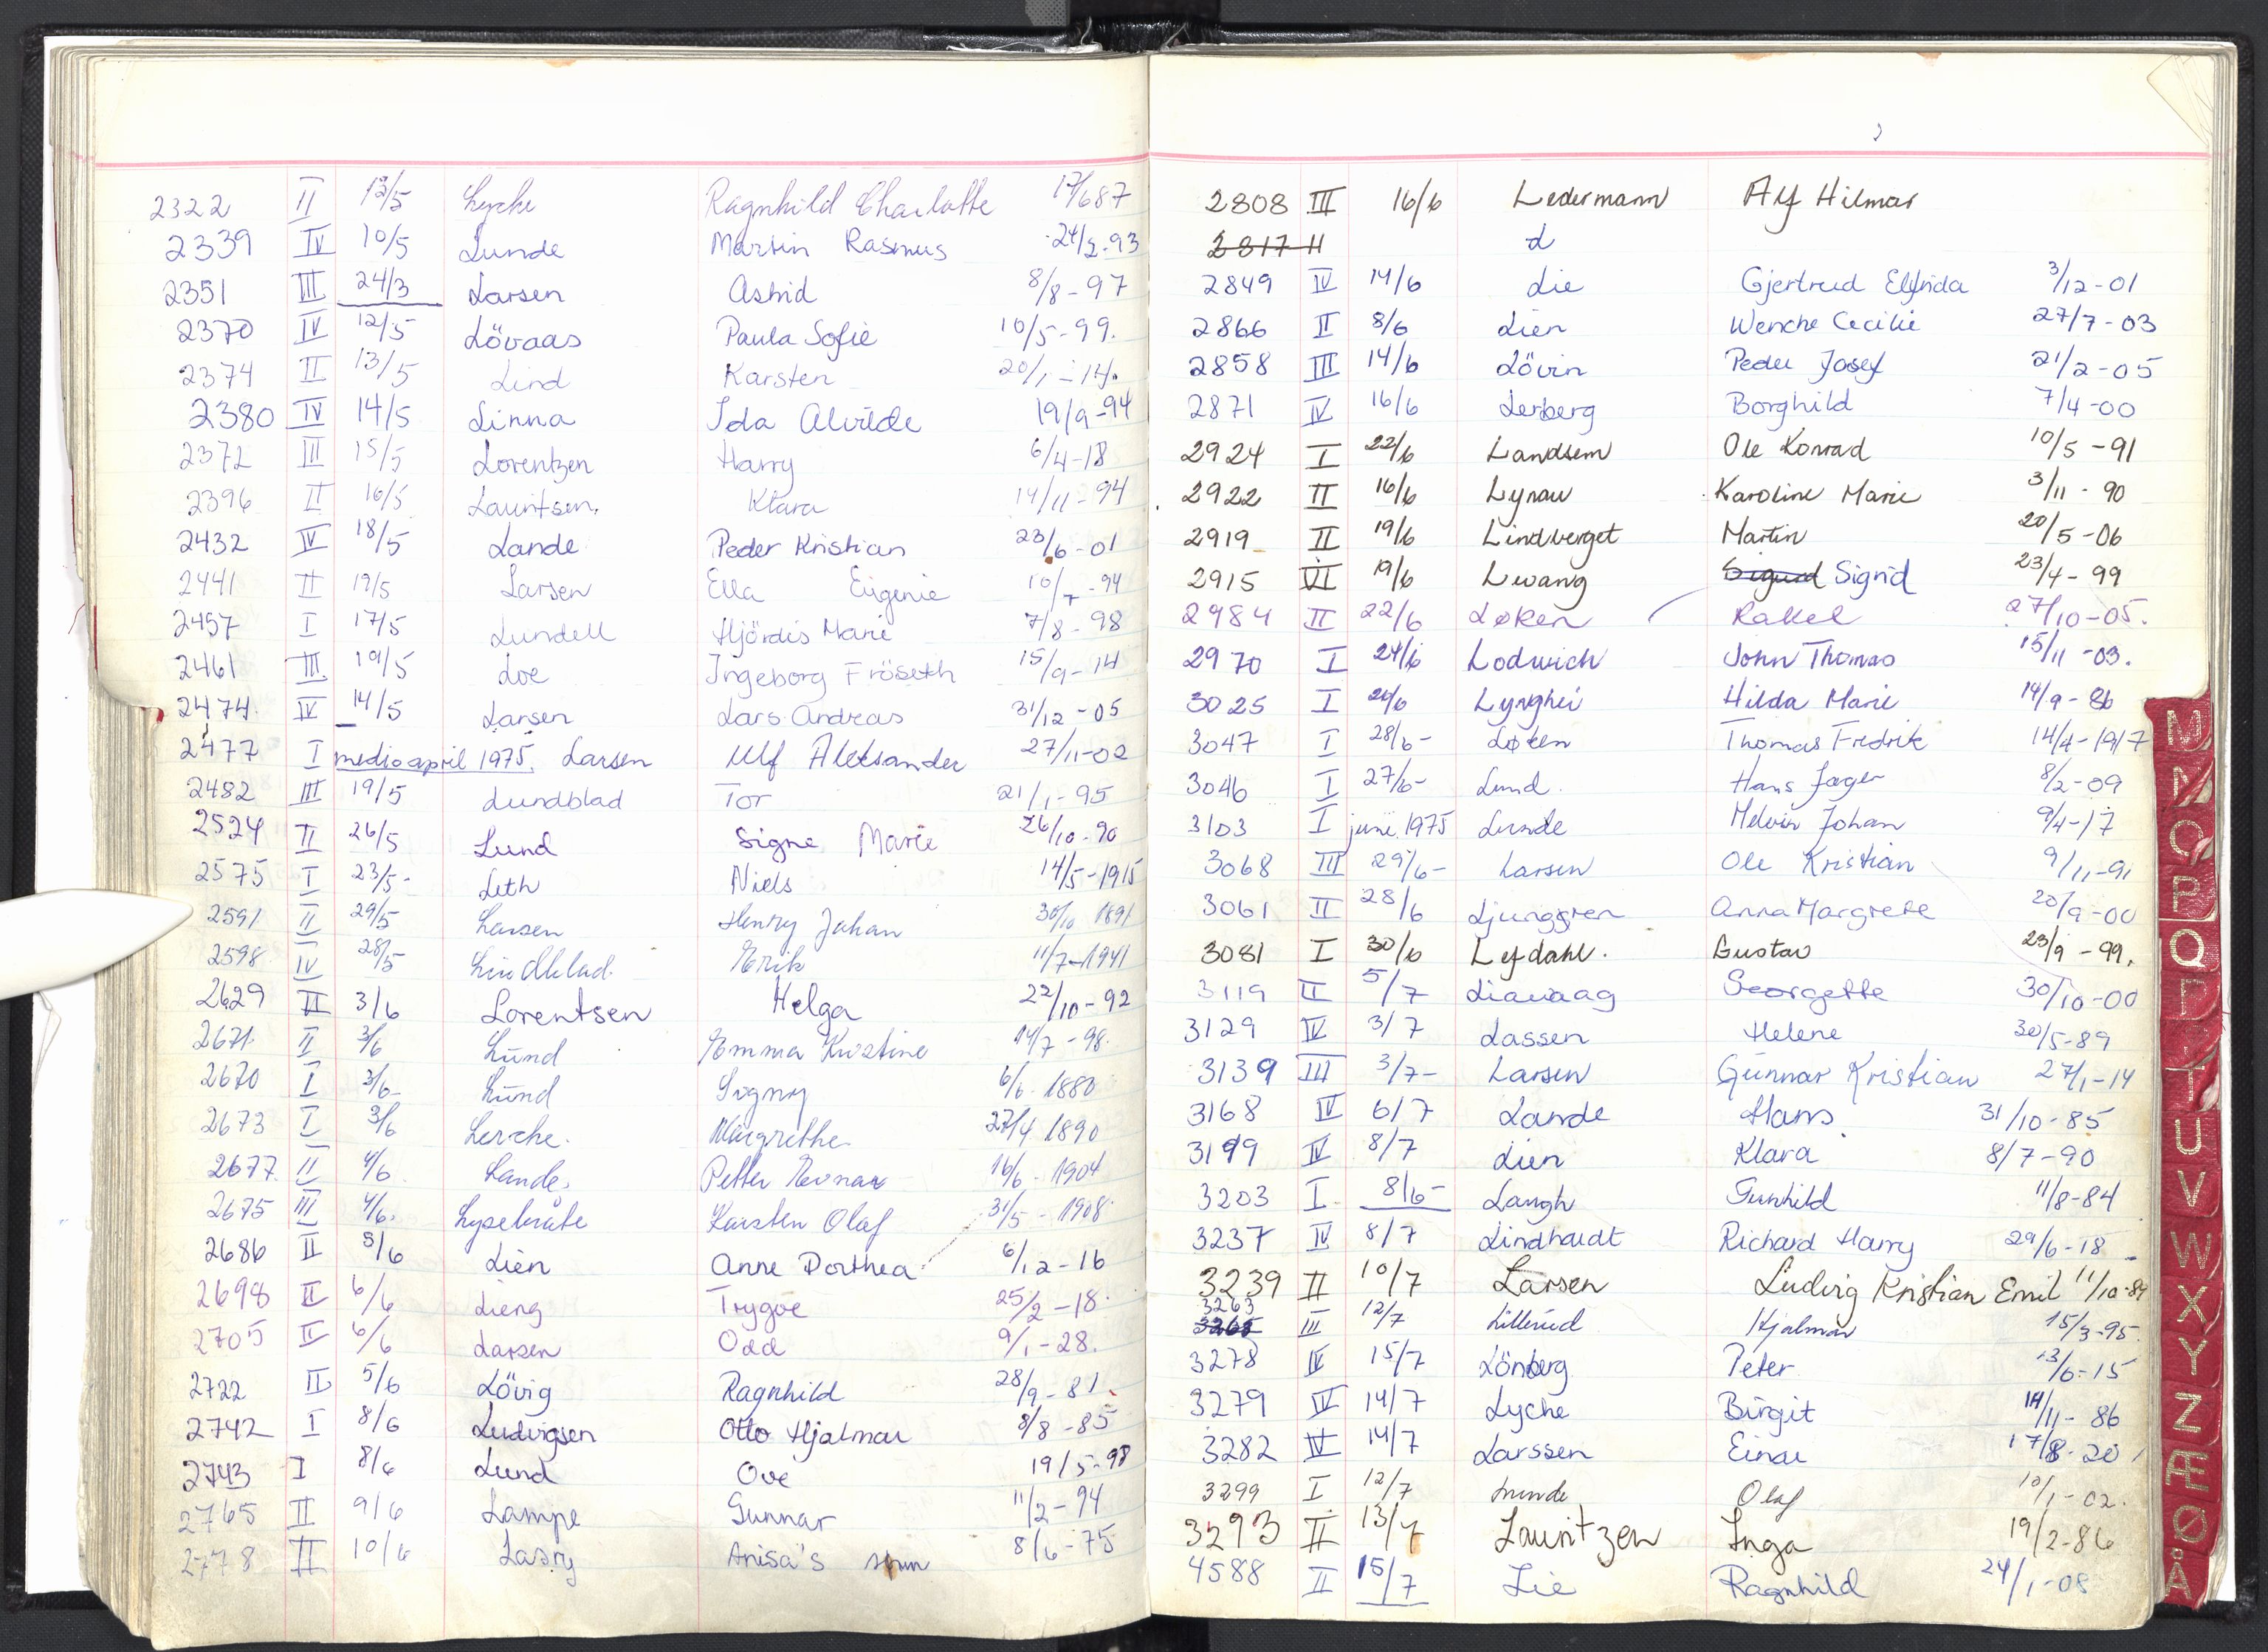 2322 II 13/5 Lyche Ragnhild Charlotte 17/6 87
2339 IV 10/5 Lunde Martin Rasmus 24/2-93
2351 III 24/3 Larsen Astrid 8/8-97
2370 IV 12/5 Lövaas Paula Sofie 10/5-99.
2374 II 13/5 Lind Karsten 20/1-14.
2380 IV 14/5 Linna Ida Alvilde 19/9-94
2372 III 15/5 Lorentzen Harry 6/4-18
2396 II 16/5 Lauritsen. Klara 14/11-94
2432 IV 18/5 Lande Peder Kristian 23/6-01
2441 II 19/5 Larsen Ella Eugenie 10/7-94
2457 I 17/5 Lundell Hjördis Marie 7/8-98
2461 III 19/5 Loe Ingeborg Fröseth 15/9-14
2474 IV 14/5 Larsen Lars Andreas 31/12-05
2477 I medio april 1975. Larsen Ulf Aleksander 27/11-02
2482 III 19/5 Lundblad Tor 21/1-95
2524 II 26/5 Lund Signe Marie 26/10-90
2575 I 23/5- Leth Niels 14/5-1915
2591 II 29/5 Larsen Henry Johan 30/10 1891
2598 IV 28/5 Lindblad. Erik 11/7-1941
2629 II 3/6 Lorentsen Helga 22/10-92
2671 II 3/6 Lund Emma Kristine 14/7-98.
2670 I 3/6- Lund Signy 6/6 1880
2673 I 3/6 Lerche. Margrethe 27/4 1890
2677 II 4/6 Lande Petter 16/6-1904
2675 III 4/6. Lysebråte Karsten Olaf 31/5-1908
2686 II 5/6 Lien Anne Dorthea 6/12-16
2698 II 6/6 Lieng Trygve 25/2-18
2705 II 6/6 Larsen Odd 9/1-28.
2722 II 5/6 Lövig Ragnhild 28/9-81
2742 I 8/6 Ludvigsen Otto Hjalmar 8/8-85
2743 I 8/6 Lund Ove 19/5-98
2765 II 9/6 Lampe Gunnar 11/2-94
2778 II 10/6 Lasry Anisa's sønn 8/6-75
2808 III 16/6 Ledermann Alf Hilmar
2817 II L
2849 IV 14/6 Lie Gjertrud Elfrida 3/12-01
2866 II 8/6 Lien Wenche Cecilie 27/7-03
2858 III 14/6 Lövin Peder Josef 21/2-05
2871 IV 16/6 Lerberg Borghild 7/4-00
2924 I 22/6 Landsem Ole Konrad 10/5-91
2922 II 16/6 Lynau Karoline Marie 3/11-90
2919 II 19/6 Lindberget Martin 20/5-06
2915 VI 19/6 Lwang Sigurd Sigrid 23/4-99
2984 II 22/6 Løken Rakel 27/10-05.
2970 I 24/6 Lodwich John Thomas 15/11-03.
3025 I 26/6 Lynghei Hilda Marie 14/9-86
3047 I 28/6- Løken Thomas Fredrik 14/4-1917
3046 I 27/6- Lund. Hans Jæger 8/2-09
3103 I juni 1975 Lunde Melvin Johan 9/4-17
3068 III 29/6- Larsen Ole Kristian 9/11-91
3061 II 28/6 Ljunggren Anna Margrete 20/9-00
3081 I 30/6 Lefdahl. Gustav 23/9-99.
3119 II 5/7 Liavaag Georgette 30/10-00
3129 IV 3/7 Lassen Helene 30/5-89
3139 III 3/7- Larsen Gunnar Kristian 27/1-14
3168 IV 6/7 Lande Hans 31/10-85
3199 IV 8/7 Lien Klara 8/7-90
3203 I 8/6- Langh Gunhild 11/8-84
3237 IV 8/7 Lindhardt Richard Harry 29/6-18
3239 II 10/7 Larsen Ludvig Kristian Emil 11/10-89
3263
3265 III 12/7 Lillerud Hjalmar 15/3-95
3278 IV 15/7 Lönberg Peter 13/6-15
3279 IV 14/7 Lyche Birgit 14/11-86
3282 IV 14/7 Larssen Einar 17/8-20
3299 I 12/7 Lunde Olaf 10/1-02.
3293 II 13/7 Lauritzen Inga 19/2-86
4588 II 15/7 Lie Ragnhild 24/1-08
M
N
O
P
Q
R
T
U
V
W
X
Y
Z
Æ
Ø
Å